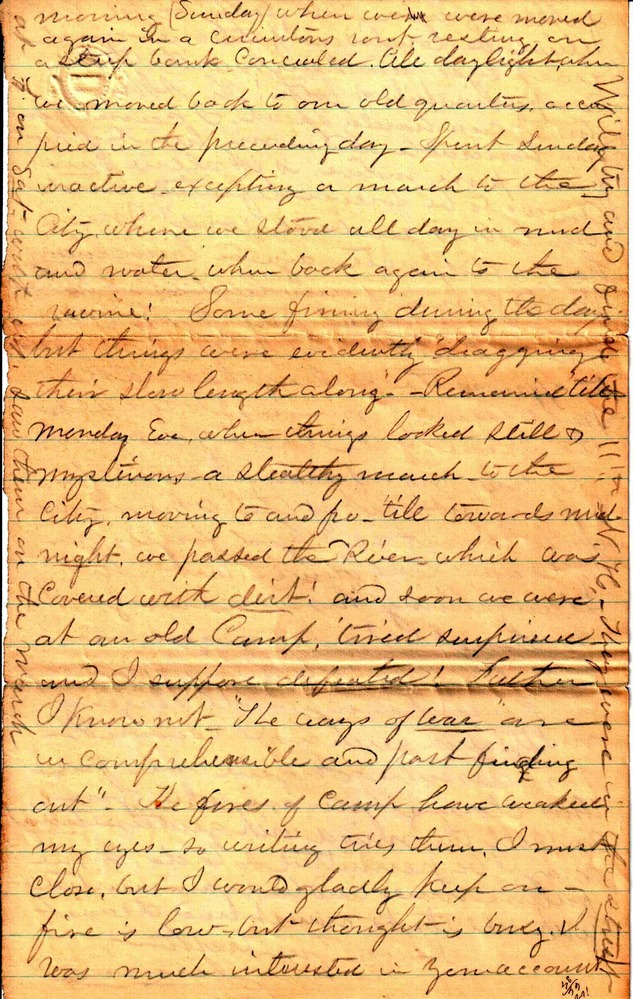 morning (Sunday) when we were moved
again in a circuitous rout, resting on
a steep bank concealed, till daylight, when
we moved back to our old quarters, occu
pied in the preceeding day - Spent Sunday
inactive, excepting a march to the
City, where we stood all day in mud
and water, when back again to the
ravine! Some firing during the day
but things were evidently "dragging
their slow length along". - Remained 'till
Monday Eve, when things looked still &
mysterious - a stealthy march - to the
City, moving to and fro - 'till towards mid
night, we passed the River - which was
covered with dirt! and soon we were
at an old Camp, tired
and I suppose defeated! Further
I know not - "The ways of war are
incomprehensible and past finding
out". The fires of Camp have weakened
my eyes - so writing tires them, I must
close, but I would gladly keep on -
fire is low, but thought is busy. I
was much interested in your account
the 11th N.H. - They were in the street
at on Sat. Saw them on the march